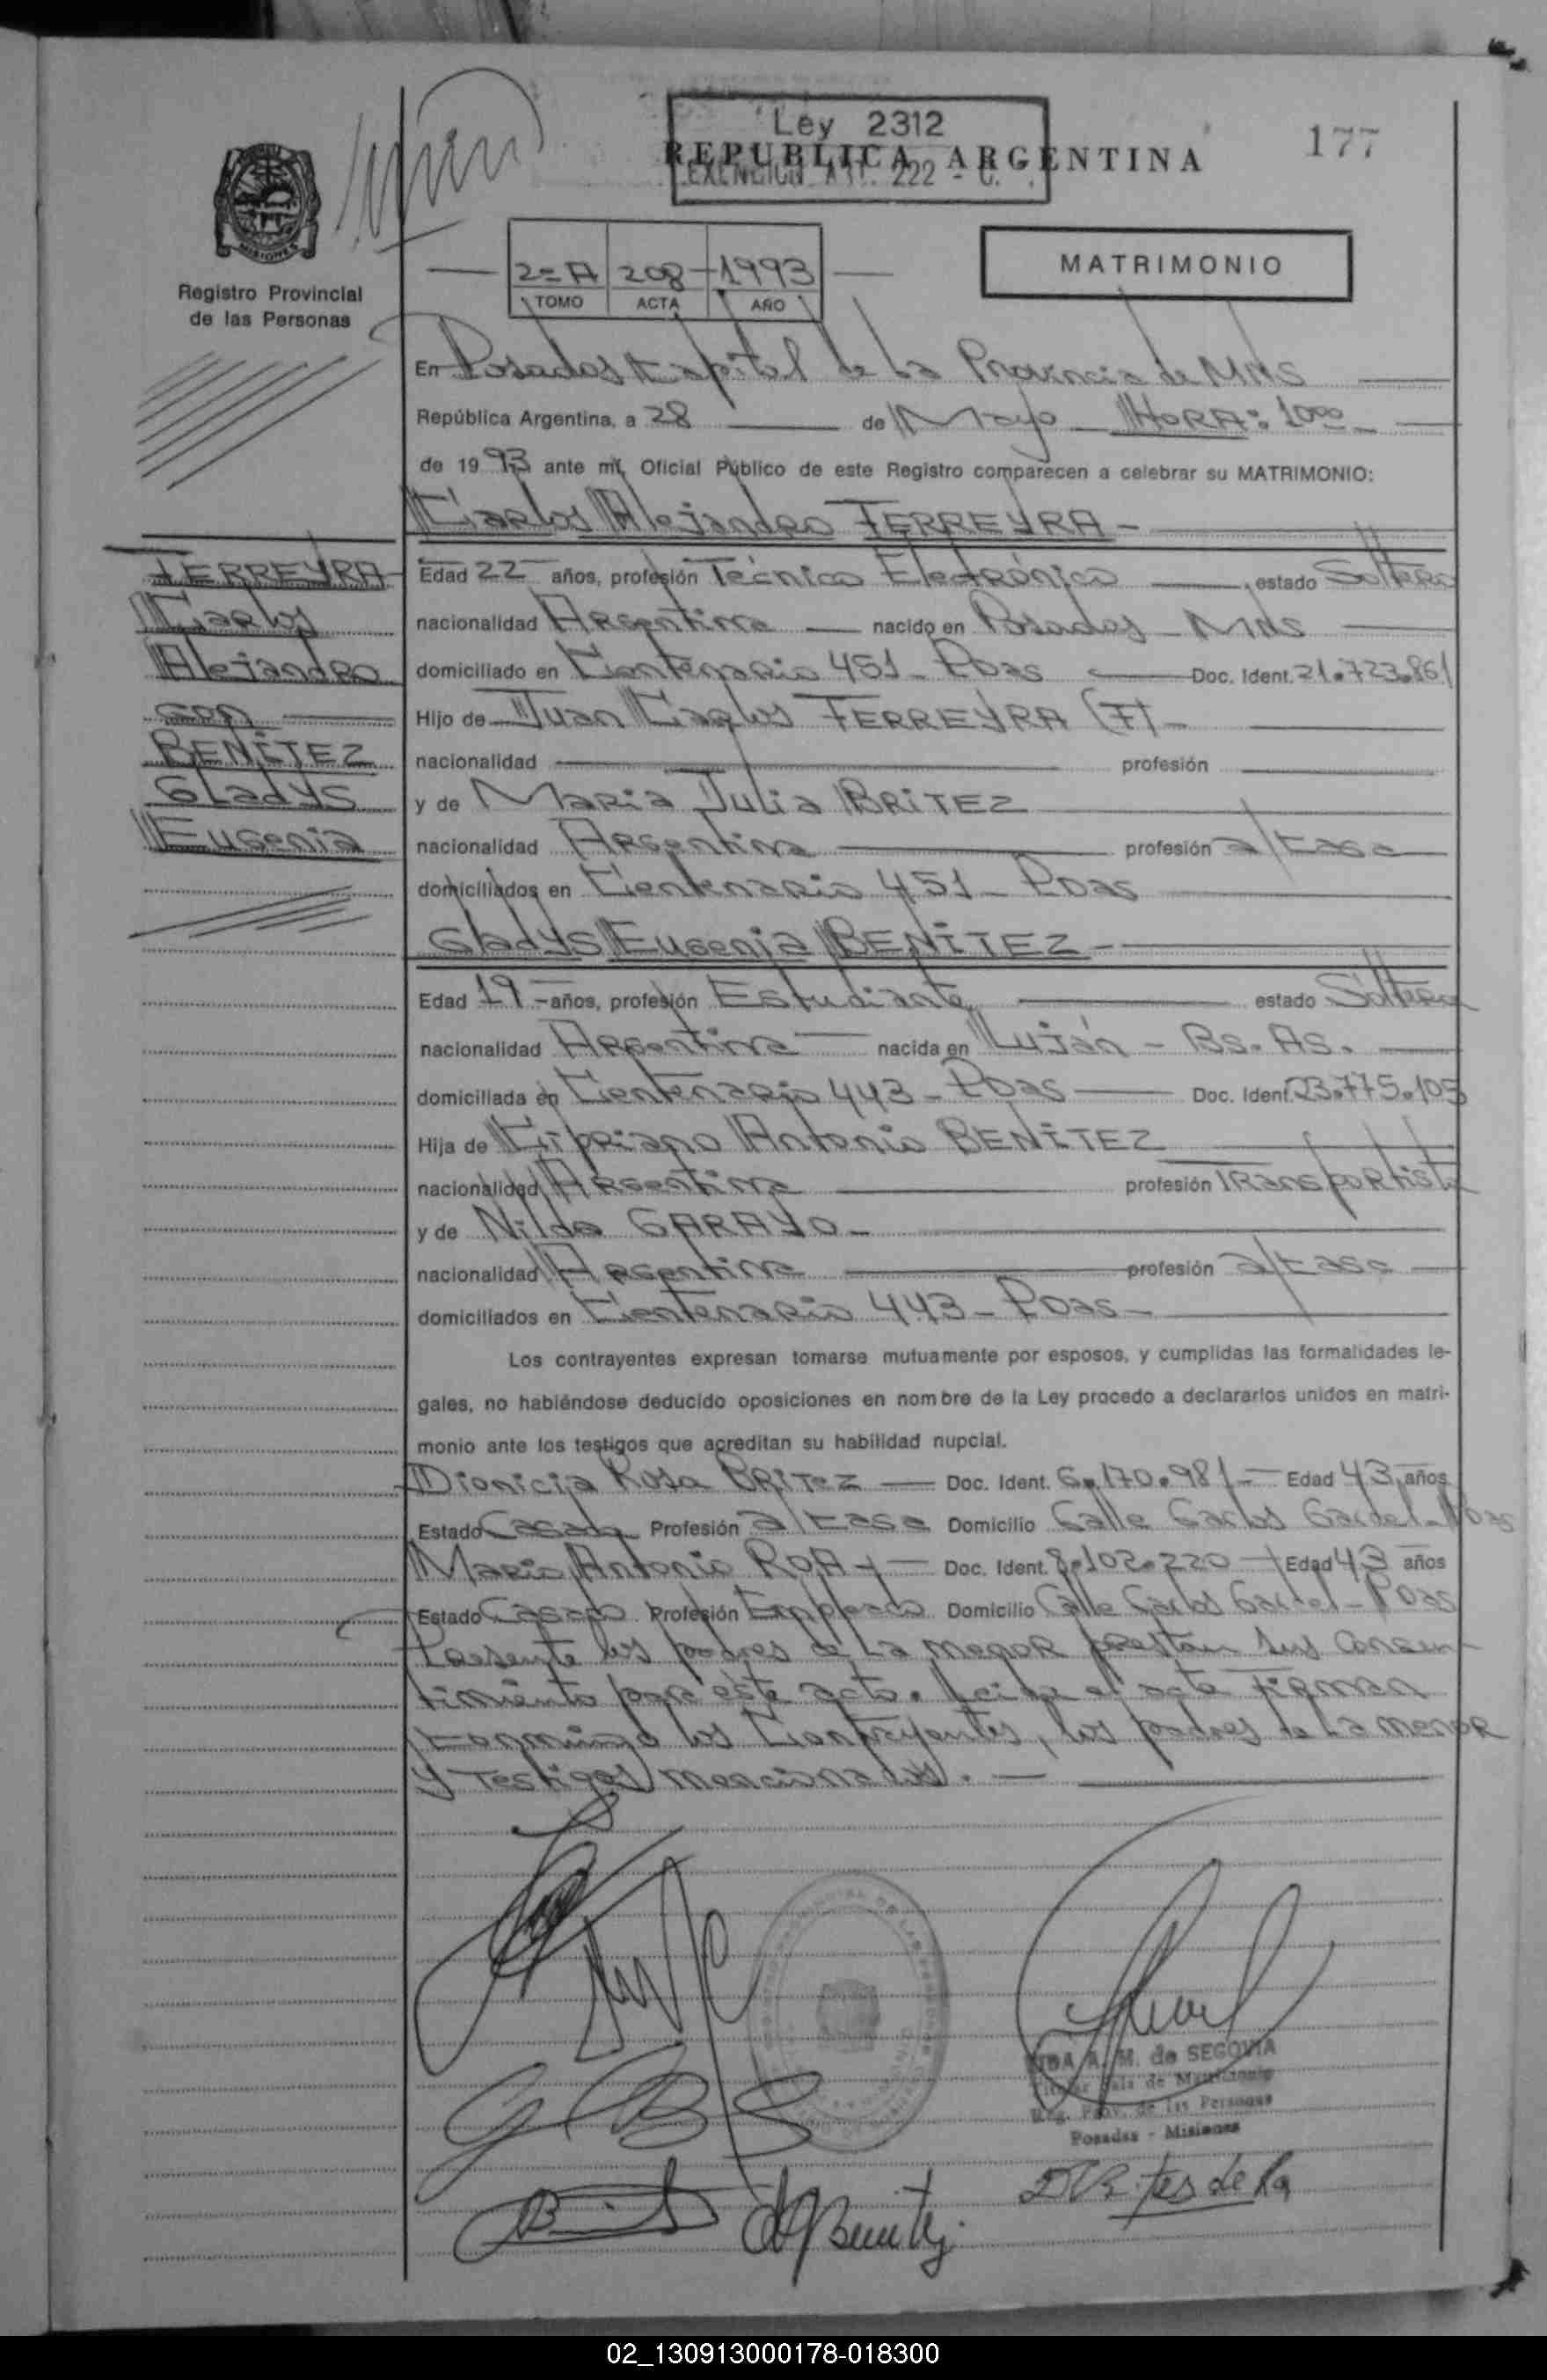 Ley 2312
REPUBLICA ARGENTINA
EXENCION ART. 222 - C.
177
MISIONES
Registro Provincial
de las Personas
2=A 208 - 1993
TOMO ACTA AÑO
MATRIMONIO
En Posadas Capital de La Provincia de Mnes
República Argentina, a 28 de Mayo - HORA: 10oo -
de 1993 ante mí, Oficial Público de este Registro comparecen a celebrar su MATRIMONIO:
Carlos Alejandro FERREYRA -
FERREYRA
Carlos
Alejandro
con
BENÍTEZ
GLadys
Eugenia
Edad 22 años, profesión Técnico Electrónico, estado Soltero
nacionalidad Argentina nacido en Posadas - Mnes
domiciliado en Centenario 451 - Pdas Doc. Ident. 21.723.861
Hijo de Juan Carlos FERREYRA (F) -
nacionalidad profesión
y de Maria Julia BRITEZ
nacionalidad Argentina profesión a/casa
domiciliados en Centenario 451 - Pdas
GLadys Eugenia BENÍTEZ -
Edad 19 - años, profesión Estudiante estado Soltera
nacionalidad Argentina nacida en Luján - Bs. As.
domiciliada en Centenario 443 - Pdas Doc. Ident. 23.775.105
Hija de Cipriano Antonio BENÍTEZ
nacionalidad Argentina profesión Transportista
y de Nilda GARAYO -
nacionalidad Argentina profesión a/casa
domiciliados en Centenario 443 - Pdas -
Los contrayentes expresan tomarse mutuamente por esposos, y cumplidas las formalidades le-
gales, no habiéndose deducido oposiciones en nombre de la Ley procedo a declararlos unidos en matri-
monio ante los testigos que acreditan su habilidad nupcial.
Dionicia Rosa BRITEZ - Doc. Ident. 6.170.981 - Edad 43 años
Estado Casada Profesión a/casa Domicilio Calle Carlos Gardel - Pdas
Mario Antonio ROA - Doc. Ident. 8.102.220 - Edad 43 años
Estado Casado Profesión Empleado Domicilio Calle Carlos Gardel - Pdas
Presente los padres de La menor prestan sus consen-
timiento para este acto. Leida el acta Firman
conmigo los Contrayentes, los padres de La menor
y testigos mencionados. -
A. M. de SEGOVIA
Titular Sala de Matrimonio
Reg. Prov. de las Personas
Posadas - Misiones
Benitez
02_130913000178-018300